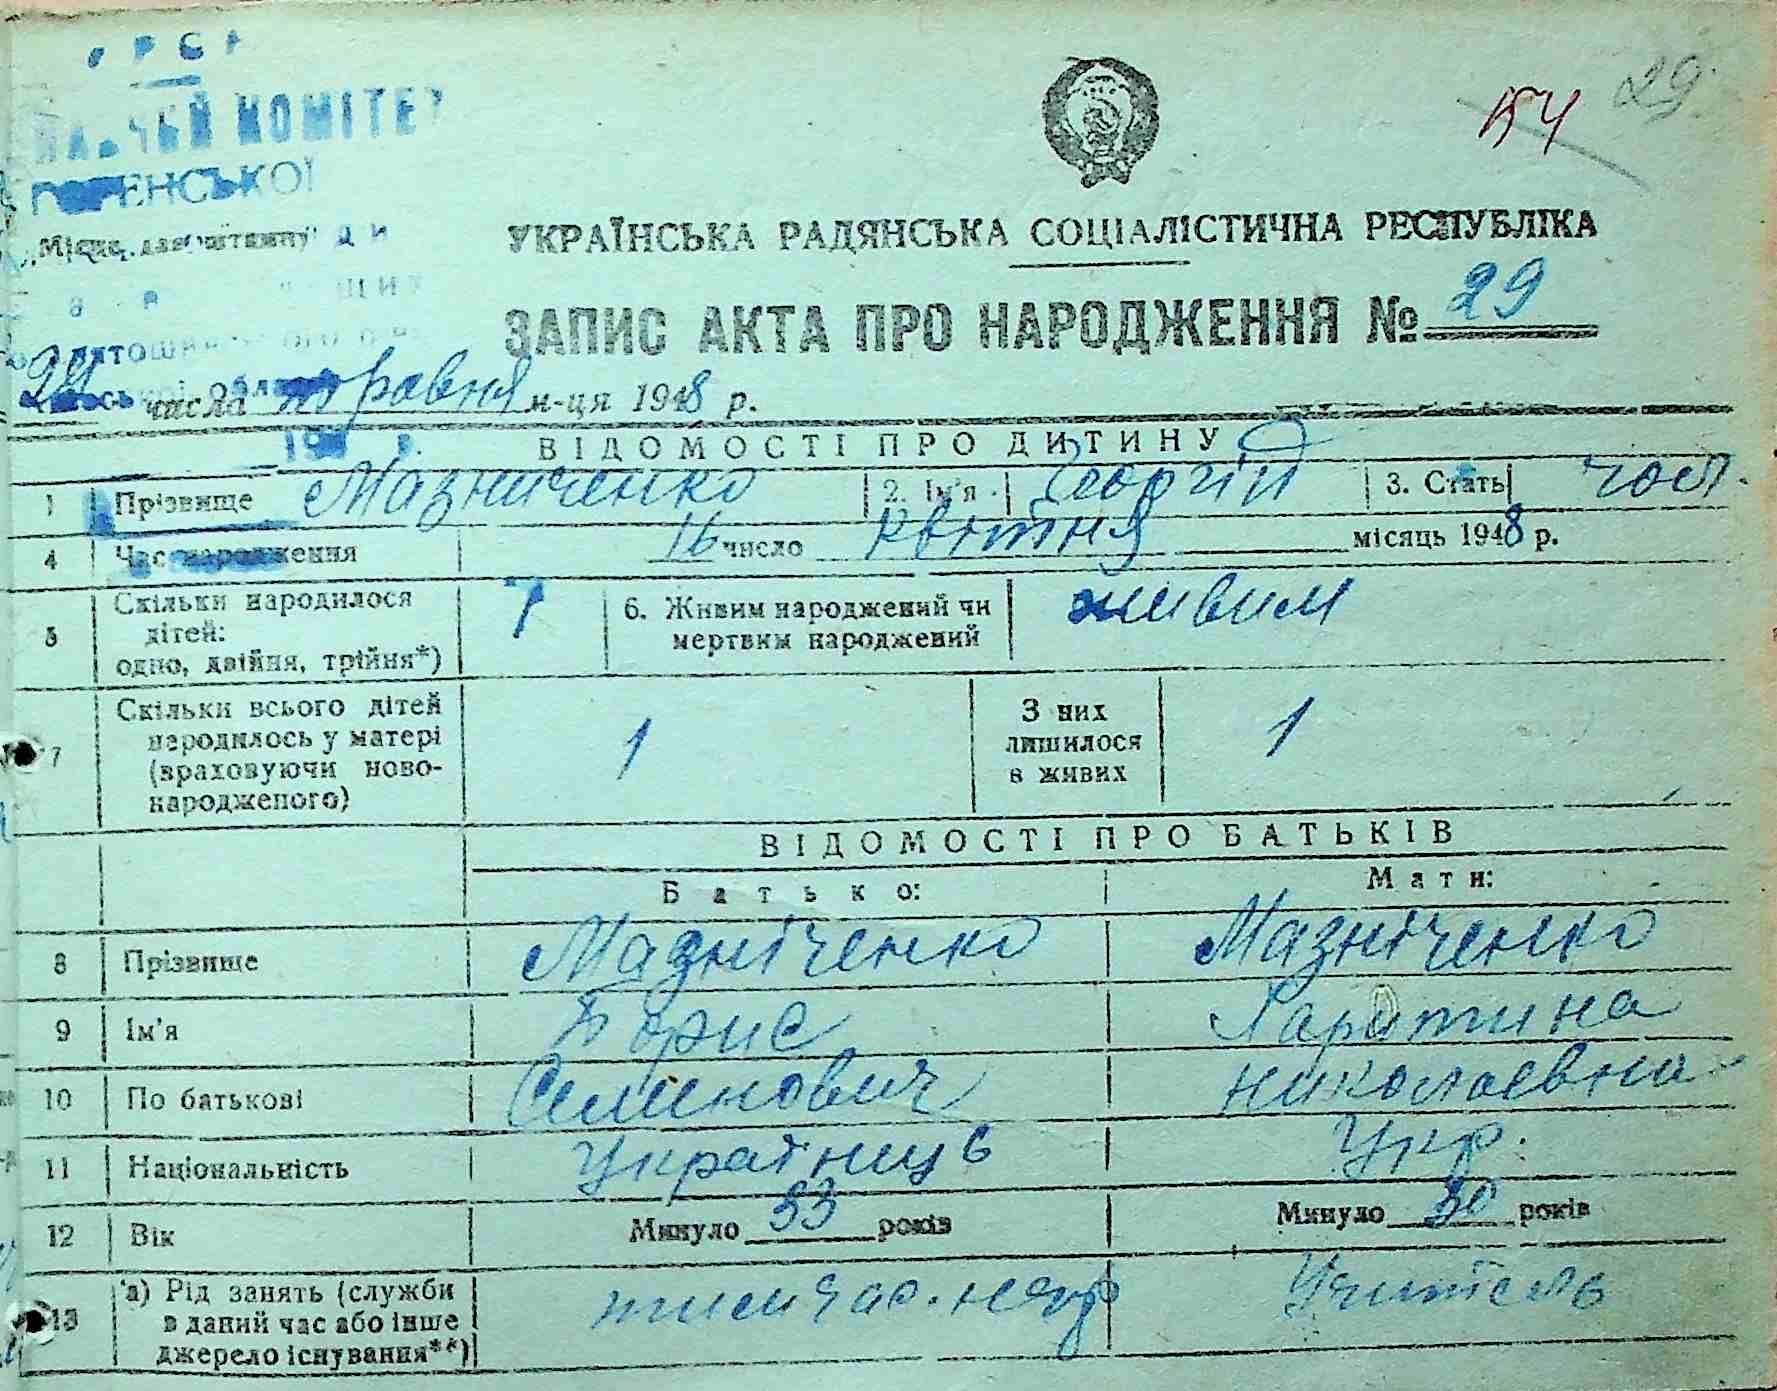 КОМІТЕТ
29
54
УКРАЇНСЬКА РАДЯНСЬКА СОЦІАЛІСТИЧНА РЕСПУБЛІКА
ЗАПИС АКТА ПРО НАРОДЖЕННЯ № 29
числа травня м-ця 1948 р.
ВІДОМОСТІ ПРО ДИТИНУ
1 Прізвище Мазниченко 2. Ім'я Георгій 3. Стать чол.
4 Час народження 16 число квітня місяць 1948 р.
5 Скільки народилося дітей: одно, двійня, трійня*) 1 6. Живим народжений чи мертвим народжений живим
7 Скільки всього дітей народилось у матері (враховуючи новонародженого) 1 З них лишилося в живих 1
ВІДОМОСТІ ПРО БАТЬКІВ
Батько: Мати:
8 Прізвище Мазніченко Мазніченко
9 Ім'я Борис
10 По батькові Семенович николаевна
11 Національність Українець Укр.
12 Вік Минуло 33 років Минуло 30 років
13 а) Рід занять (служби в даний час або інше джерело існування**) тимчас. Учитель